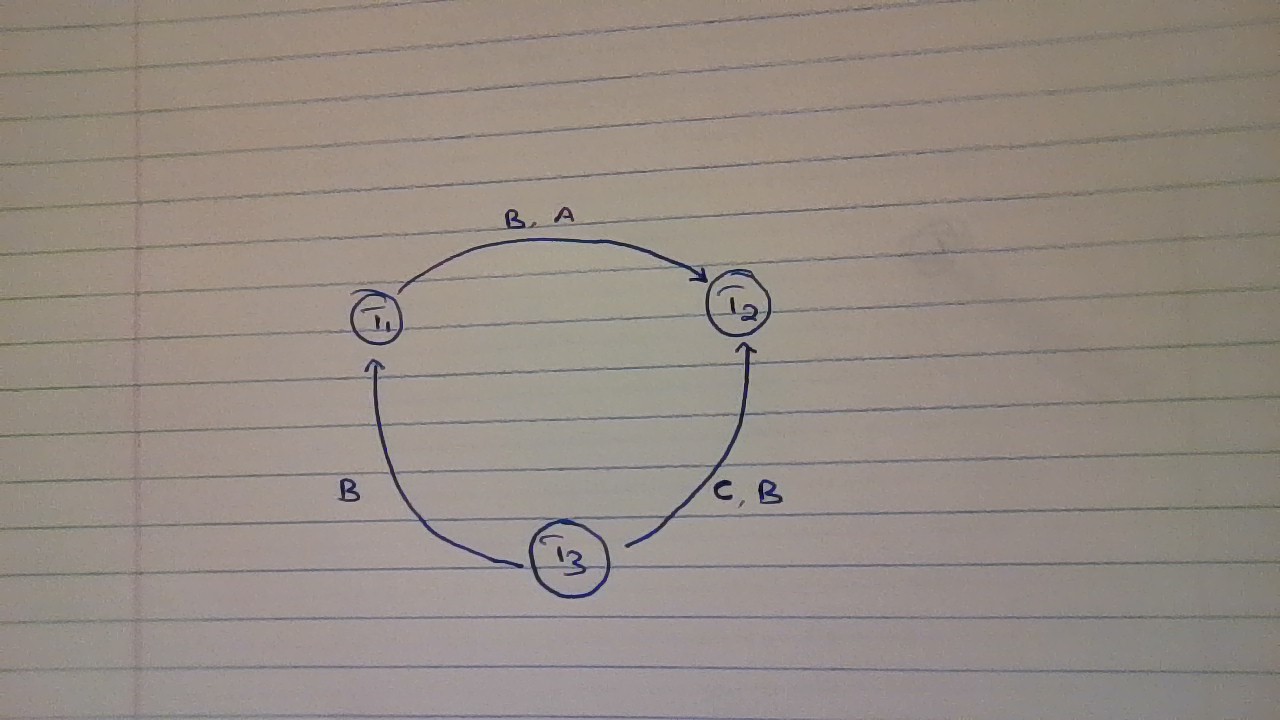 B, A
T1
T2
B
C, B
T3